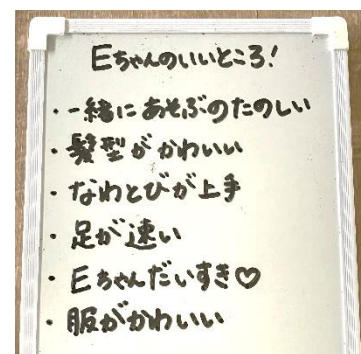 Eちゃんのいいところ!
・一緒にあそぶのたのしい
・髪型がかわいい
・なわとびが上手
・足が速い
・Eちゃんだいすき♡
・服がかわいい